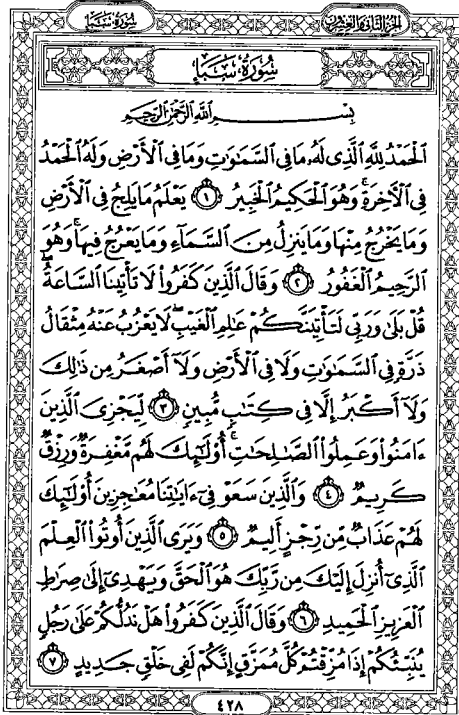 سُورَةُ سَبَإٍ
الجزء الثاني والعشرون
سُورَةُ سَبَإٍ
بِسْمِ اللَّهِ الرَّحْمَٰنِ الرَّحِيمِ
الْحَمْدُ لِلَّهِ الَّذِي لَهُ مَا فِي السَّمَٰوَٰتِ وَمَا فِي الْأَرْضِ وَلَهُ الْحَمْدُ
فِي الْآخِرَةِ ۚ وَهُوَ الْحَكِيمُ الْخَبِيرُ ١ يَعْلَمُ مَا يَلِجُ فِي الْأَرْضِ
وَمَا يَخْرُجُ مِنْهَا وَمَا يَنزِلُ مِنَ السَّمَاءِ وَمَا يَعْرُجُ فِيهَا ۚ وَهُوَ
الرَّحِيمُ الْغَفُورُ ٢ وَقَالَ الَّذِينَ كَفَرُوا لَا تَأْتِينَا السَّاعَةُ ۖ
قُلْ بَلَىٰ وَرَبِّي لَتَأْتِيَنَّكُمْ عَٰلِمِ الْغَيْبِ ۖ لَا يَعْزُبُ عَنْهُ مِثْقَالُ
ذَرَّةٍ فِي السَّمَٰوَٰتِ وَلَا فِي الْأَرْضِ وَلَا أَصْغَرُ مِن ذَٰلِكَ
وَلَا أَكْبَرُ إِلَّا فِي كِتَٰبٍ مُّبِينٍ ٣ لِّيَجْزِيَ الَّذِينَ
ءَامَنُوا وَعَمِلُوا الصَّٰلِحَٰتِ ۚ أُولَٰئِكَ لَهُم مَّغْفِرَةٌ وَرِزْقٌ
كَرِيمٌ ٤ وَالَّذِينَ سَعَوْ فِي ءَايَٰتِنَا مُعَٰجِزِينَ أُولَٰئِكَ
لَهُمْ عَذَابٌ مِّن رِّجْزٍ أَلِيمٌ ٥ وَيَرَى الَّذِينَ أُوتُوا الْعِلْمَ
الَّذِي أُنزِلَ إِلَيْكَ مِن رَّبِّكَ هُوَ الْحَقَّ وَيَهْدِي إِلَىٰ صِرَٰطِ
الْعَزِيزِ الْحَمِيدِ ٦ وَقَالَ الَّذِينَ كَفَرُوا هَلْ نَدُلُّكُمْ عَلَىٰ رَجُلٍ
يُنَبِّئُكُمْ إِذَا مُزِّقْتُمْ كُلَّ مُمَزَّقٍ إِنَّكُمْ لَفِي خَلْقٍ جَدِيدٍ ٧
٤٢٨